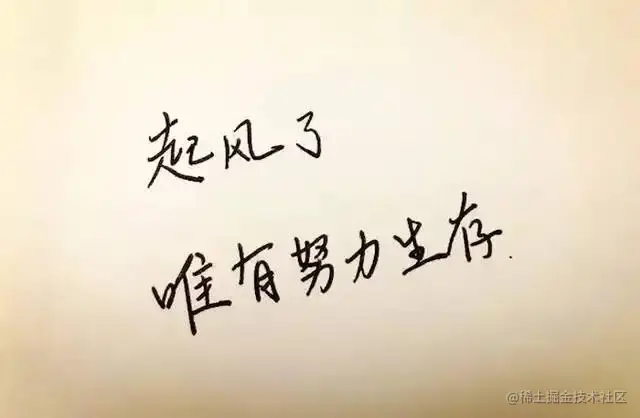 起风了
唯有努力生存.
@稀土掘金技术社区